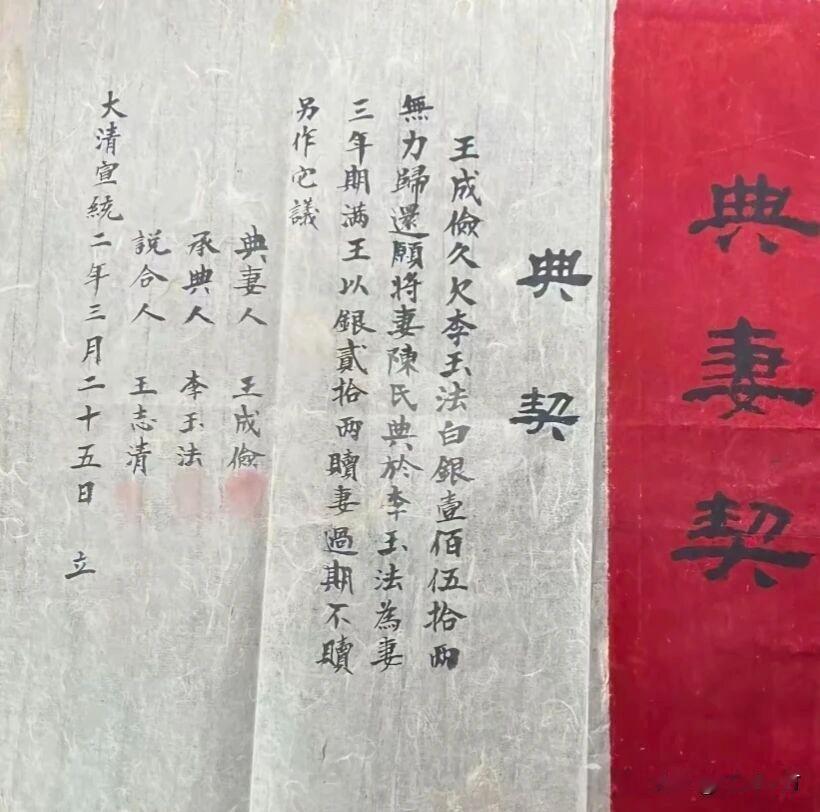 典妻契
典契
王成儉久欠李玉法白銀壹佰伍拾兩
無力歸還願将妻陳氏典於李玉法為妻
三年期满王以銀貳拾兩贖妻過期不贖
另作它議
典妻人 王成儉
承典人 李玉法
説合人 王志清
大清宣統二年三月二十五日 立